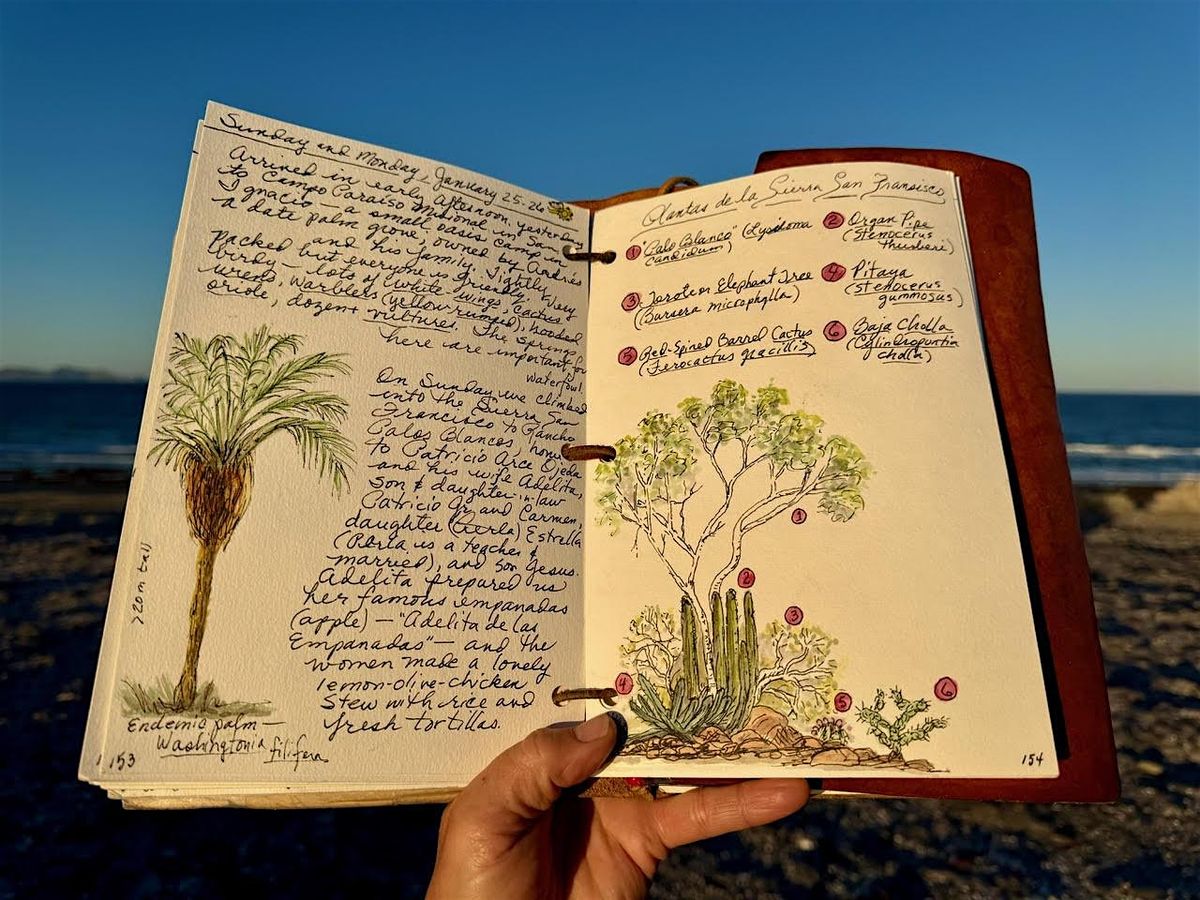 Sunday and Monday, January 25-26
Arrived in early afternoon, yesterday
to Campo Paraiso Misional in San
Ignacio — a small oasis camp in
a date palm grove, owned by Andres
and his family. Slightly
Packed but everyone is friendly. Very
birdy — lots of white wings, cactus
wrens, warblers (yellow rumped), hooded
oriole, dozen+ vultures. The springs
here are important for
waterfowl.
On Sunday we climbed
into the Sierra San
Francisco to Rancho
Palos Blancos, home
to Patricio Arce Ojeda
and his wife Adelita,
son & daughter-in-law
Patricio Jr and Carmen,
daughter (Perla) Estrella
(Perla is a teacher &
married), and son Jesus.
Adelita prepared us
her famous empanadas
(apple) — "Adelita de las
Empanadas" — and the
women made a lovely
lemon-olive-chicken
stew with rice and
fresh tortillas.
>20m tall
Endemic palm —
Washingtonia filifera
153
Plantas de la Sierra San Francisco
1 "Palo Blanco" (Lysiloma
candidum)
2 Organ Pipe
(Stenocerus
thurberi)
3 Torote or Elephant Tree
(Bursera microphylla)
4 Pitaya
(Stenocerus
gummosus)
5 Red-Spined Barrel Cactus
(Ferocactus gracillis)
6 Baja Cholla
(Cylindropuntia
cholla)
1
2
3
4
5
6
154